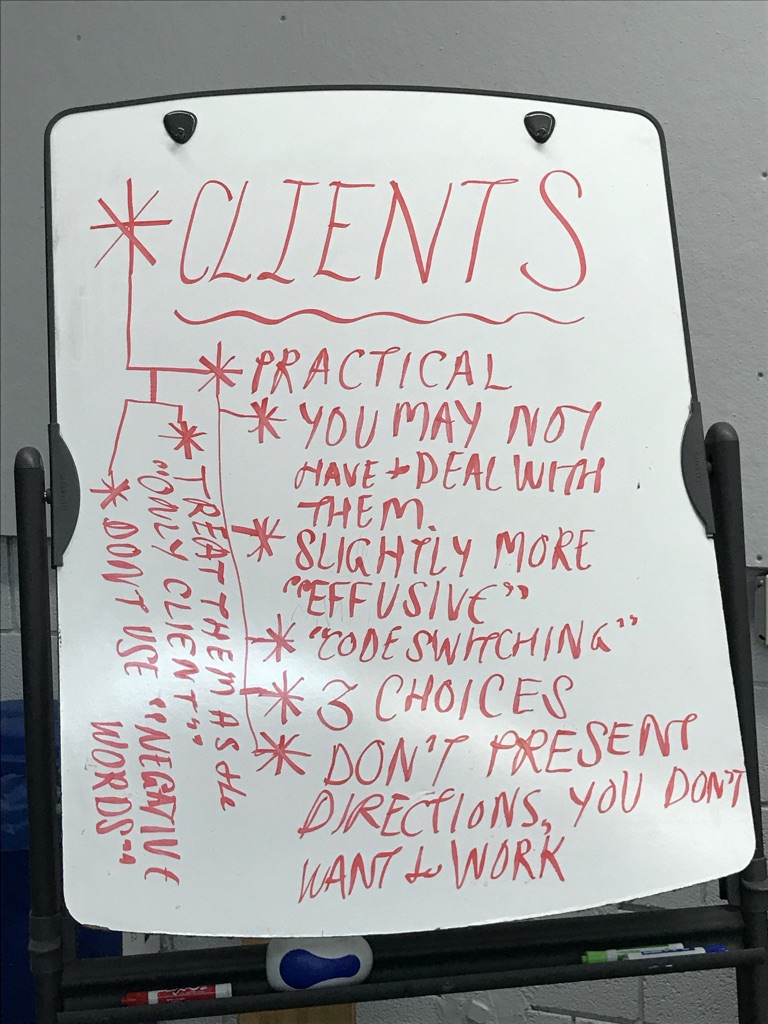 CLIENTS
PRACTICAL
YOU MAY NOT
HAVE to DEAL WITH
THEM.
SLIGHTLY MORE
"EFFUSIVE"
"CODESWITCHING"
3 CHOICES
DON'T PRESENT
DIRECTIONS, YOU DON'T
WANT to WORK
TREAT THEM AS the
"ONLY CLIENT"
DON'T USE "NEGATIVE
WORDS"